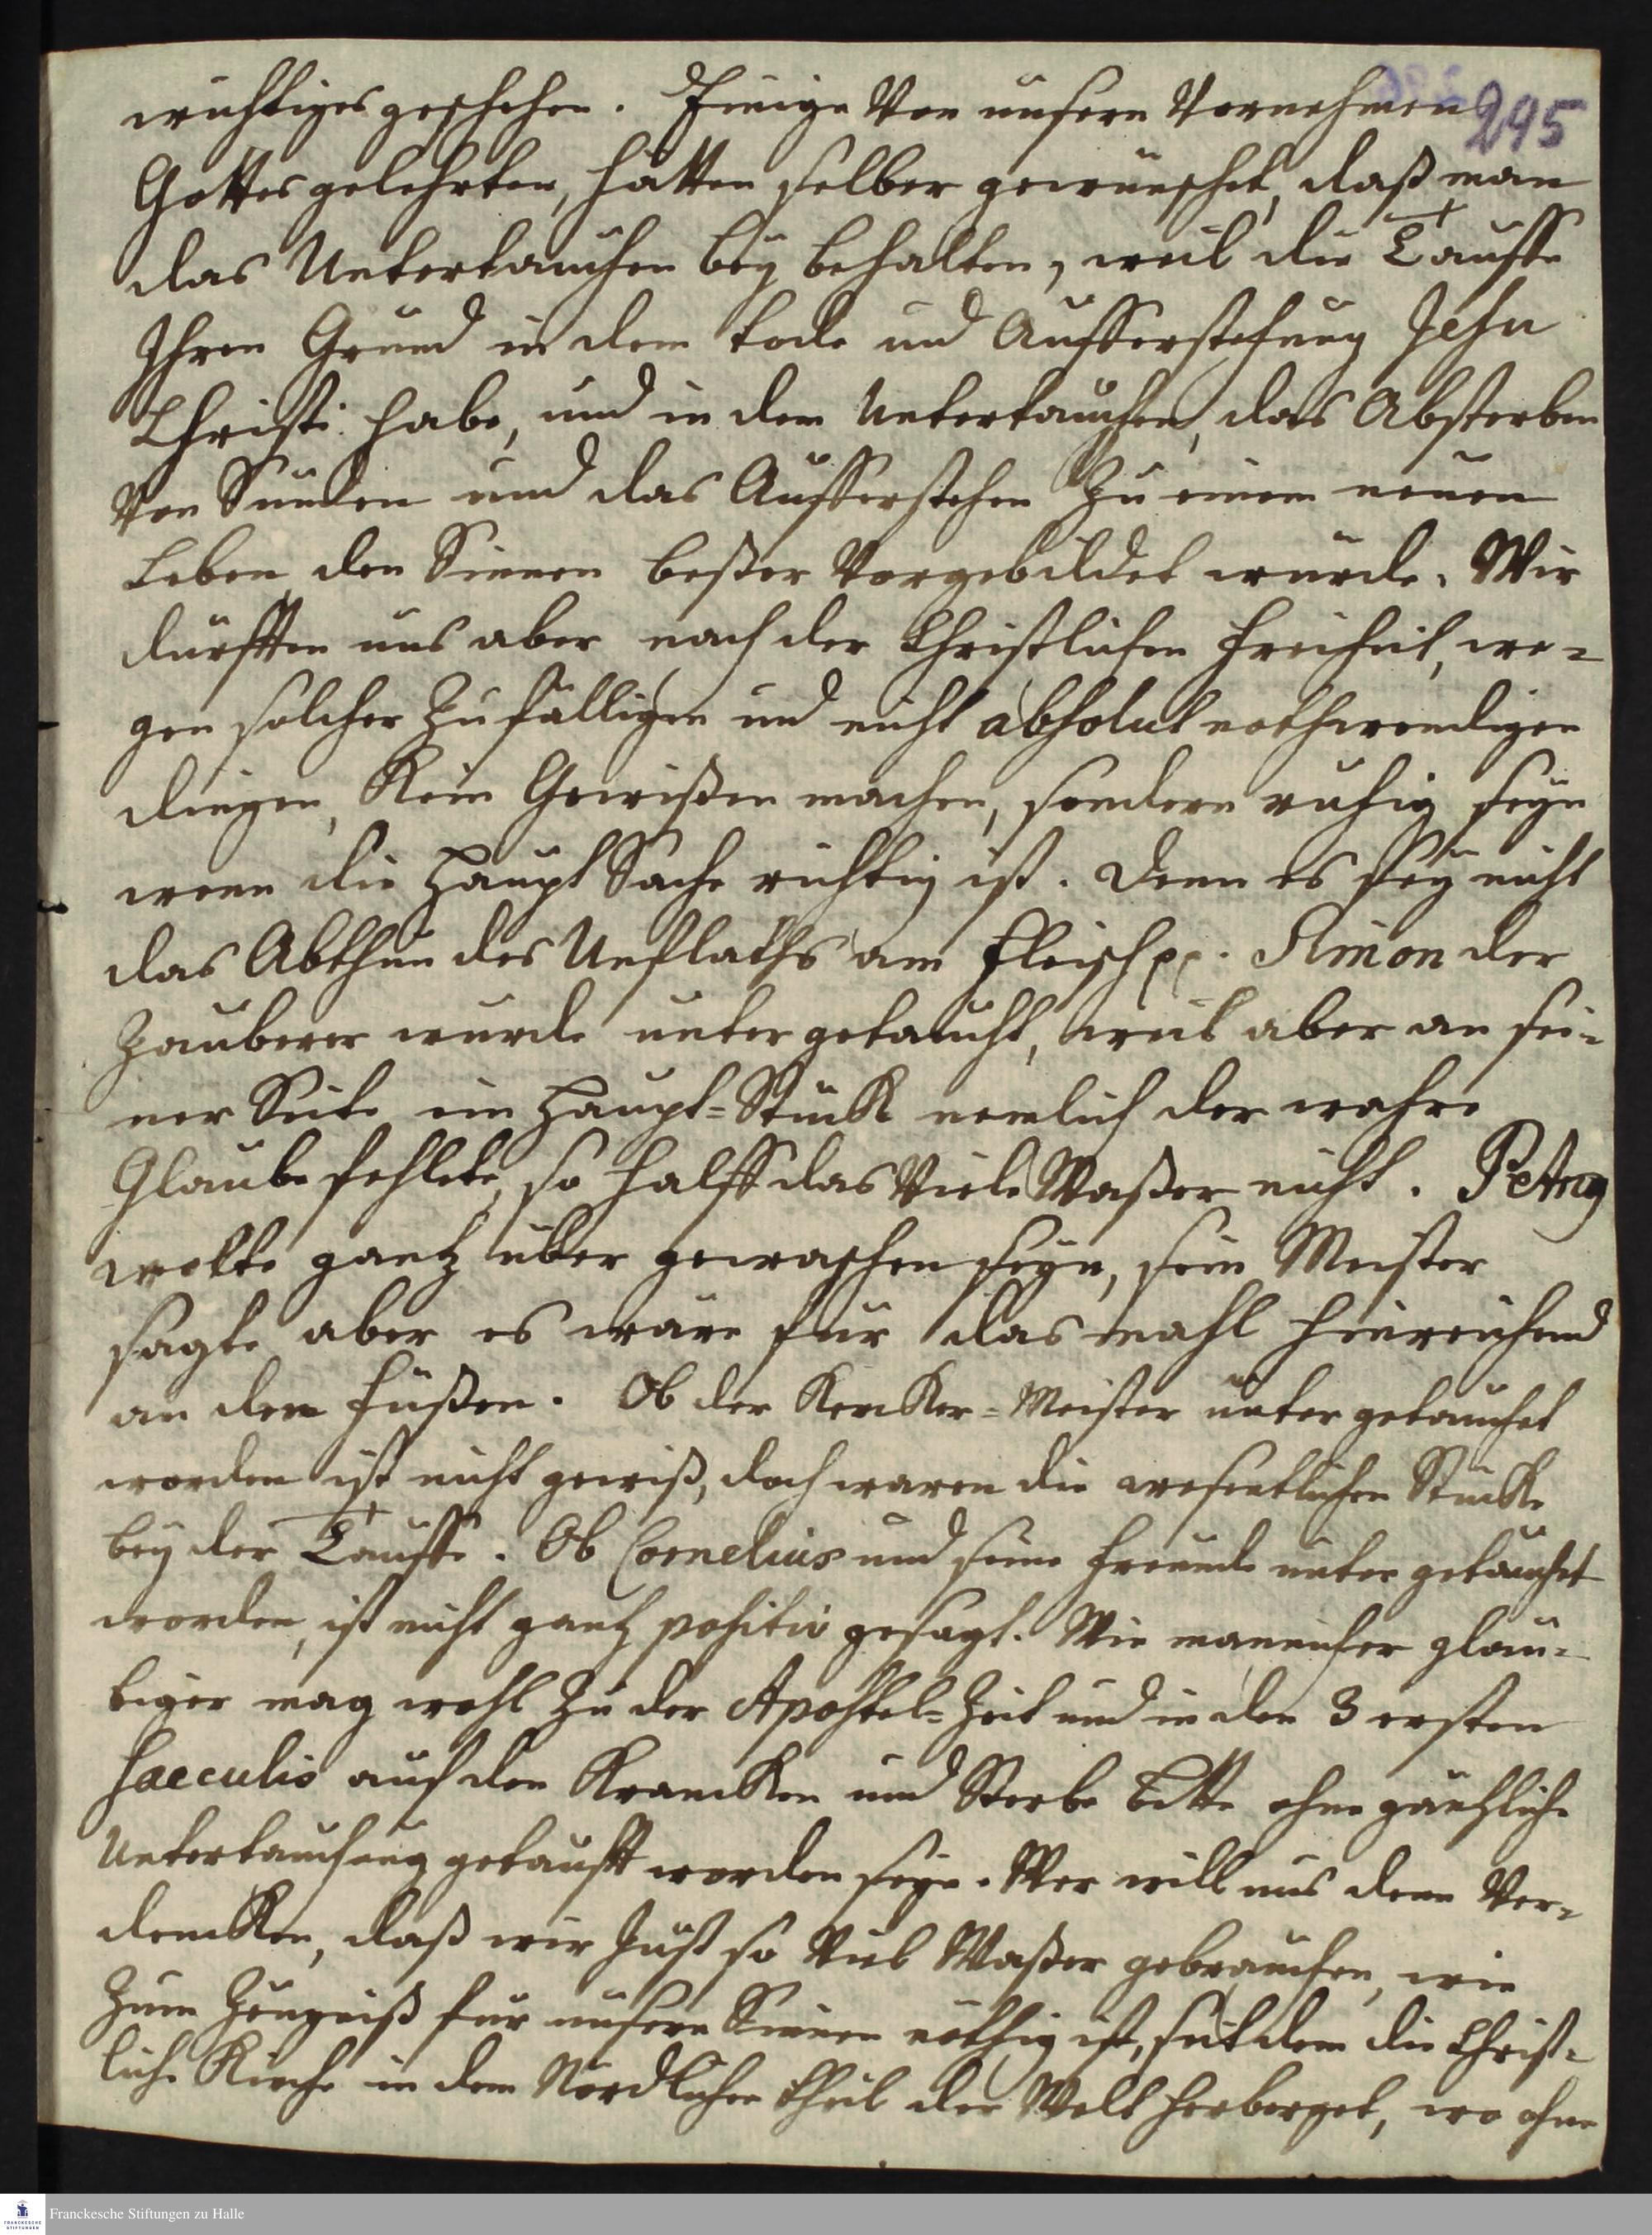 295
wichtiges geschehen. Einige von unsern Vornehmen
Gottesgelehrten, hätten selber gewünschet, daß man
das Untertauchen bey behalten, weil die Tauffe
Ihren Grund in dem tode und Aufferstehung Jesu
Christi habe, und in dem Untertauchen, das Absterben
Von Sünden und das Aufferstehen zu einem neuen
Leben den Sinnen beßer Vorgebildet würde. Wir
dürfften uns aber nach der Christlichen Freiheit, we-
gen solcher zufälligen und nicht absolut nothwendigen
dingen, Kein Gewißen machen, sondern ruhig seyn
wenn die Haupt Sache richtig ist. Denn es sey nicht
das Abthun des Unflaths am Fleisch pp. Simon der
Zauberer wurde unter getaucht, weil aber an sei-
ner Seite ein Haupt-Stück nemlich der wahre
Glaube fehlete, so halff das Viele Waßer nicht. Petrus
wolte gantz über gewaschen seyn, sein Meister
sagte aber es wäre für das mahl hinreichend
an den Füßen. Ob der Kercker-Meister unter getauchet
worden ist nicht gewiß, doch waren die wesentlichen Stücke
bey der Tauffe. Ob Cornelius und seine Freunde unter getauchet
worden, ist nicht gantz positiv gesagt. Wie mannicher gläu-
biger mag wohl zu der Apostel-Zeit und in den 3 ersten
Saeculis auf den Krancken und Sterbe Bette ohne gäntzliche
Untertauchung getaufft worden seyn. Wer will uns denn Ver-
dencken, daß wir Just so Viel Waßer gebrauchen, wie
zum Zeugniß für unsere Sinnen nöthig ist, seit dem die Christ-
liche Kirche in dem Nördlichen theil der Welt herberget, wo ohne
Franckesche Stiftungen zu Halle